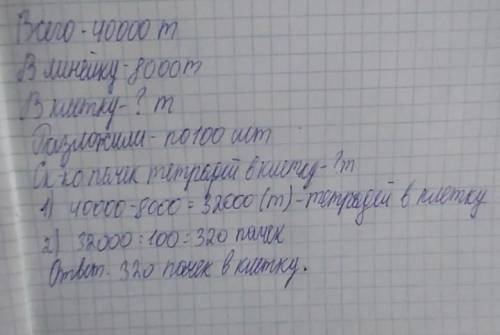 Всего - 40000 т
В линейку - 8000 т
В клетку - ? т
Разложили - по 100 шт
Ск-ко пачек тетрадей в клетку - ? т
1) 40000 - 8000 = 32000 (т) - тетрадей в клетку
2) 32000 : 100 = 320 пачек
Ответ: 320 пачек в клетку.